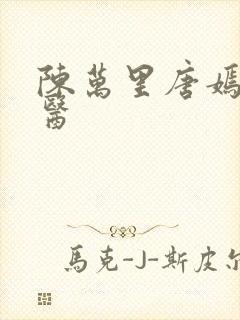 陳萬里唐嫣
醫
馬克-J-斯皮尔